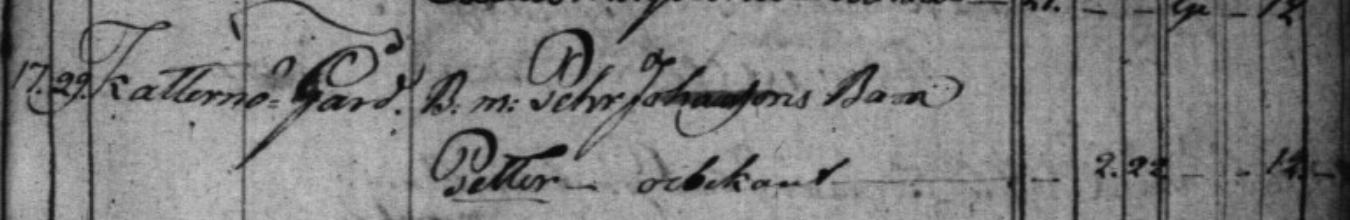 17. 29. Katternö Gård. B: m: Pehr Johansons Barn
Petter obekant — — 2. 22 — — 12. —